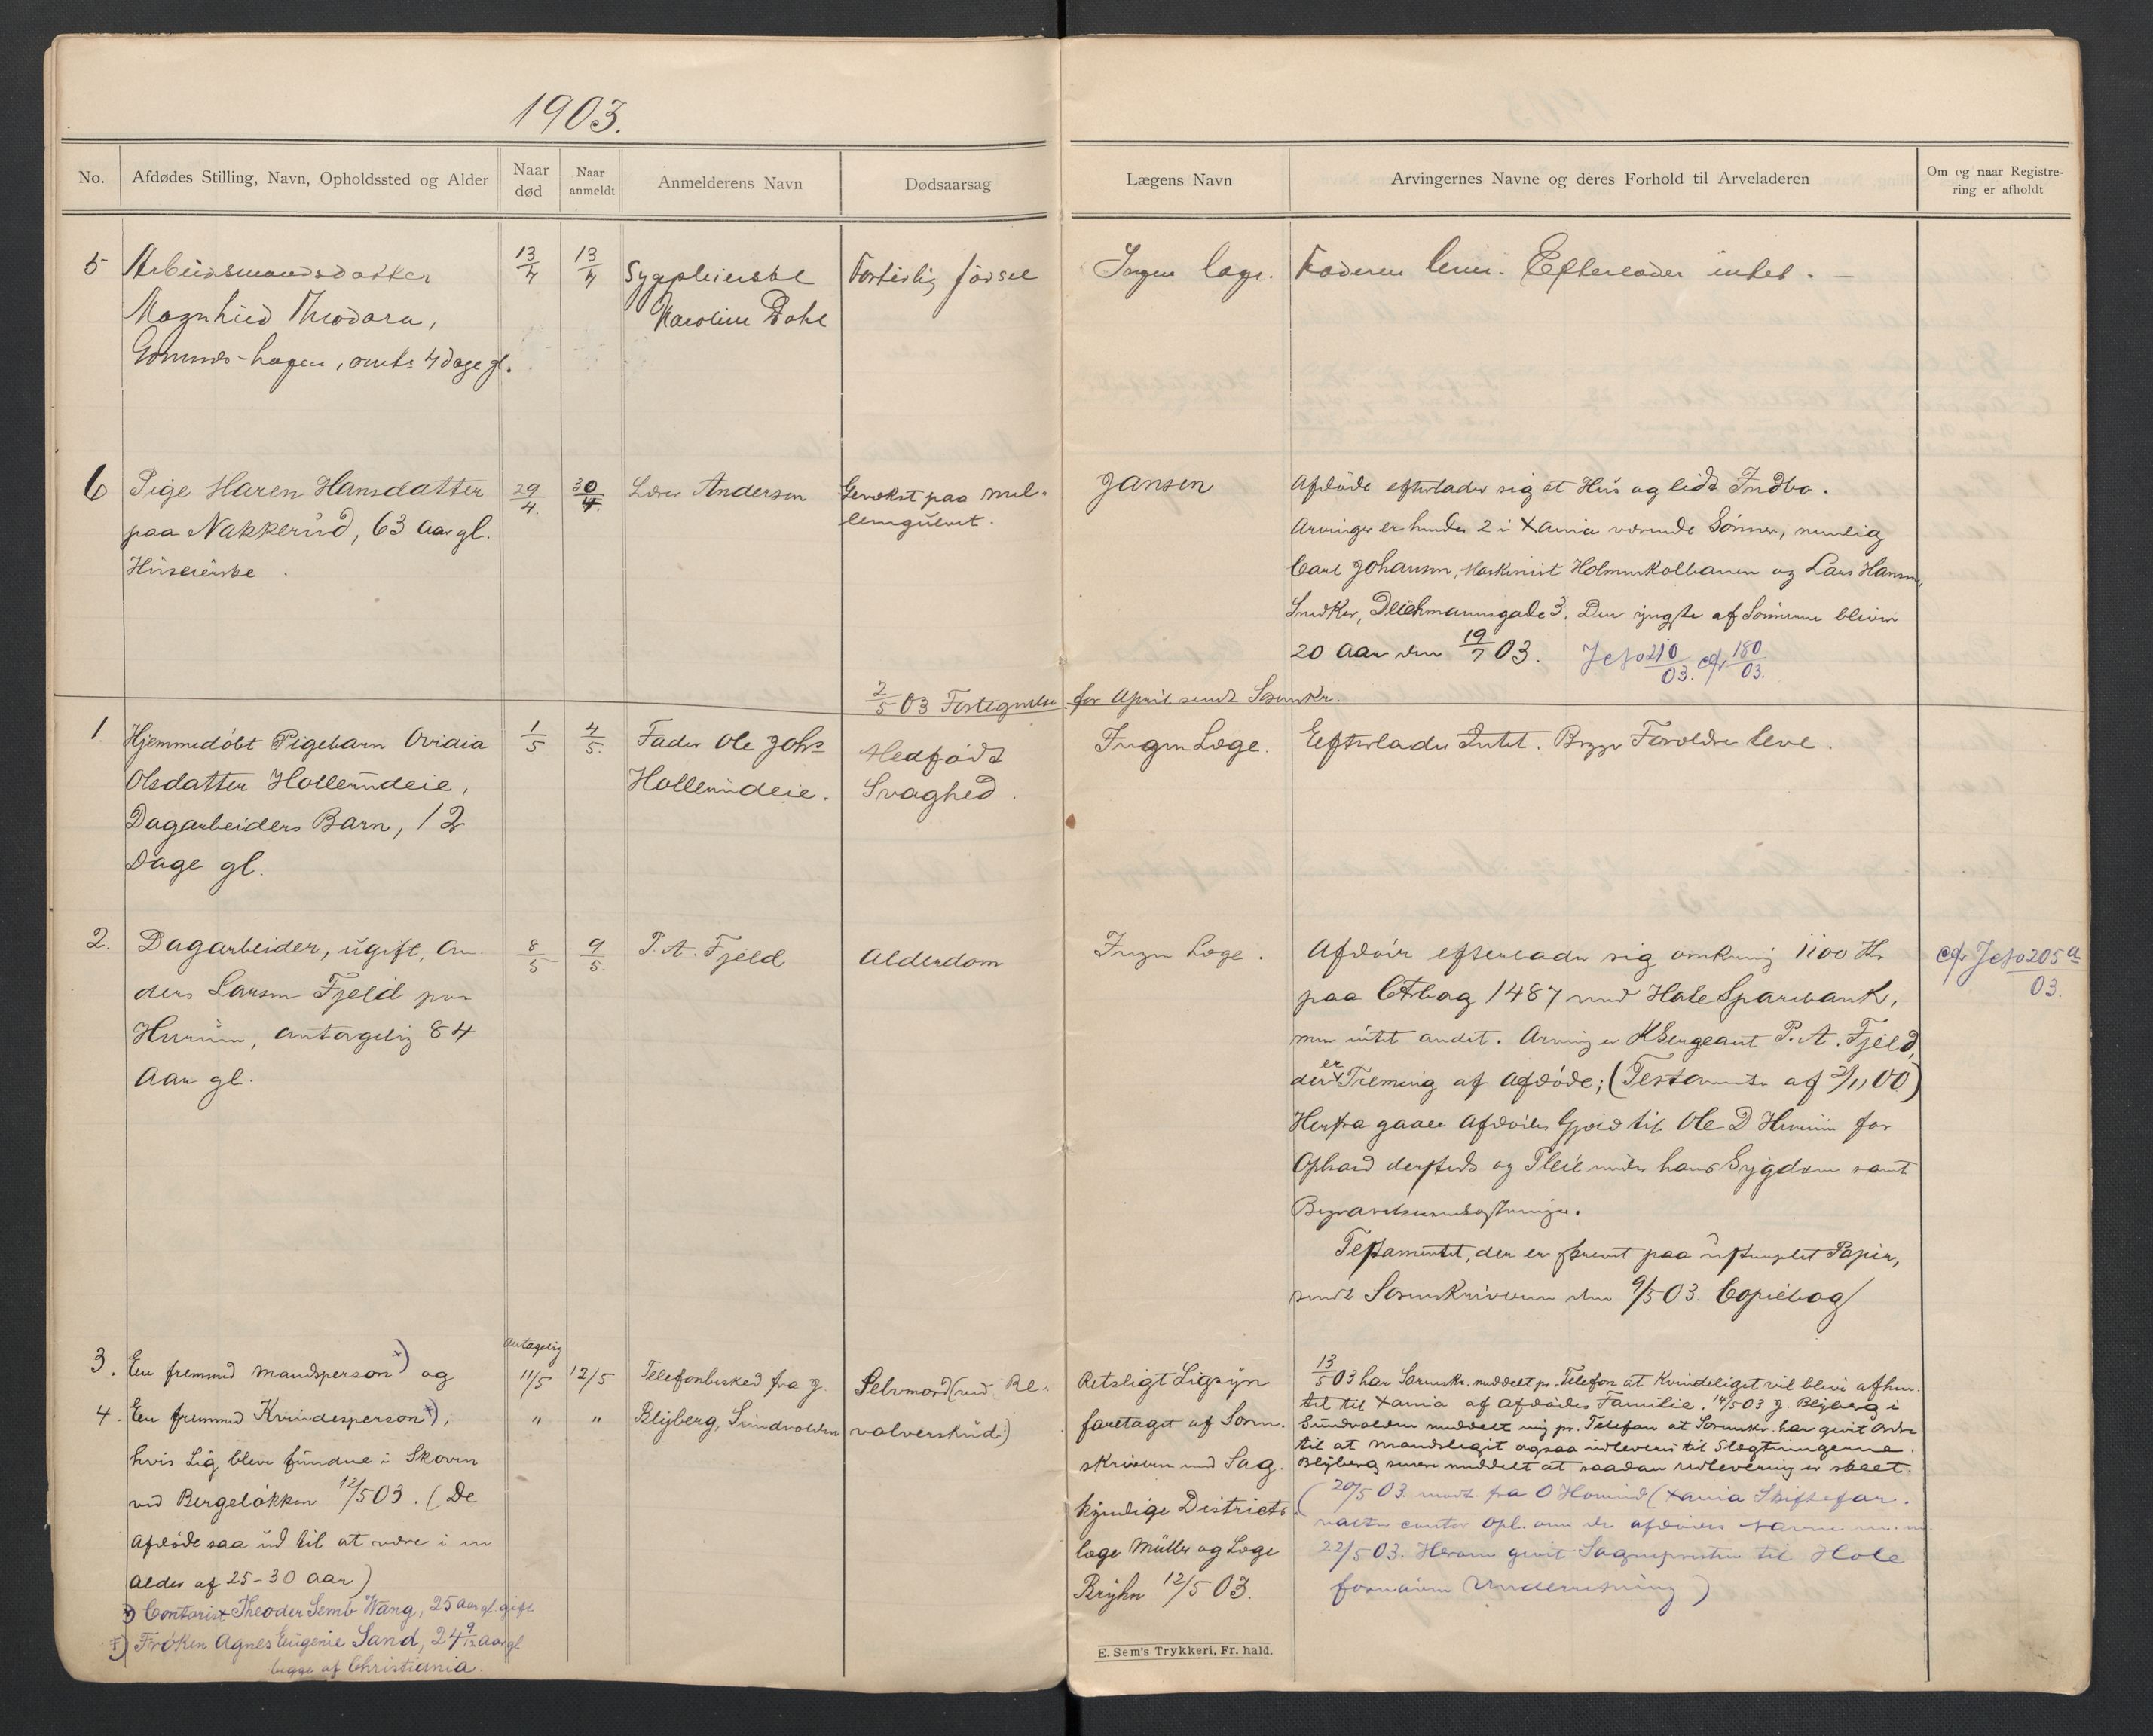 1903.
No.
Afdødes Stilling, Navn, Opholdssted og Alder
Naar død
Naar anmeldt
Anmelderens Navn
Dødsaarsag
Lægens Navn
Arvingernes Navne og deres Forhold til Arveladeren
Om og naar Registre-
ring er afholdt
5
Arbeidsmandsdatter
Magnhild Theodora,
hagen, omtr. 4 dage gl.
13/4
13/4
Sygepleierske
Karoline Dahl
Fortidlig fødsel
Ingen læge.
Faderen lever. Efterlader intet. —
6
Pige Maren Hansdatter
paa Nakkerud, 63 Aar gl.
Huseierske.
29/4.
30/4.
Lærer Andersen
Gevækst paa Mel-
lemgulvet.
Jansen
Afdøde efterlader sig et Hus og lidt Indbo.
Arvinger er hendes 2 i Xania værende Sønner, nemlig
Carl Johansen, Maskinist Holmenkolbanen og Lars Hansen,
Snedker, Deichmannsgade 3. Den yngste af Sønnerne bliver
20 Aar den 19/7 03. JcNo 210/03. cfr 180/03.
2/5 03 Fortegnelse for April sendt Sorenskr.
1.
Hjemmedøbt Pigebarn Ovidia
Olsdatter Hollerudeie,
Dagarbeiders Barn, 12
Dage gl.
1/5
4/5.
Fader Ole Johs
Hollerudeie.
Medfødt
Svaghed.
Ingen Læge.
Efterlader Intet. Begge Forældre leve.
2.
Dagarbeider, ugift, An-
ders Larsen Fjeld paa
Hurum, antagelig 84
Aar gl.
8/5
9/5.
P. A. Fjeld
Alderdom
Ingen Læge.
Afdøde efterlader sig omkring 1100 Kr
paa Ctrbog 1487 med Hole Sparebank,
men intet andet. Arving er KSergeant P. A. Fjeld,
der er Treming af Afdøde; (Testamente af 2/11 00)
Herfra gaaer Afdødes Gjæld til Ole D Hurum for
Ophold dersteds og Pleie under hans Sygdom samt
Begravelsesomkostninger.
Testamentet, der er skrevet paa ustemplet Papir,
sendt Sorenskriveren den 9/5 03. Copiebog
cfr JcNo 205a/03.
3.
En fremmed Mandsperson x) og
4.
En fremmed Kvindesperson x),
hvis Lig bleve fundne i Skoven
ved Bergeløkken 12/5 03. (De
Afdøde saa ud til at være i en
Alder af 25-30 Aar)
x) Contorist Theodor Semb Wang, 25 Aar gl. gift
x) Frøken Agnes Eugenie Sand, 24 9/12 Aar gl
begge af Christiania.
Antagelig
11/5
12/5
"
"
Telefonbesked fra J.
Blyberg, Sundvolden
Selvmord (ved Re-
volverskud)
Retsligt Ligsyn
foretaget af Soren-
skriveren med Sag-
kyndige Districts-
læge Müller og Læge
Bryhn 12/5 03.
13/5 03 har Sorenskr. meddelt pr. Telefon at Kvindeliget vil blive afhen-
tet til Xania af Afdødes Familie. 14/5 03 J. Blyberg i
Sundvolden meddelt mig pr. Telefon at Sorenskr. har givet Ordre
til at Mandsliget ogsaa udleveres til Slægtningerne.
Blyberg senere meddelt at saadan Udlevering er skeet.
(20/5 03. modt. fra O (Xania Skiftefor-
valter contor Opl. om de afdødes Navne m.m.
22/5 03. Herom givet Sogneprsten til Hole
fornøden Underretning)
E. Sem's Trykkeri, Fr. hald.